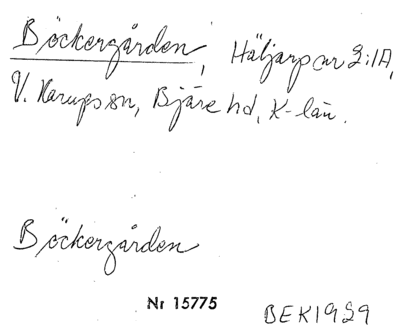 Böckergården, Häljarp ar 2:1A,
V. Karups sn, Bjäre hd, K-län.
Böckergården
Nr 15775
BEK1929